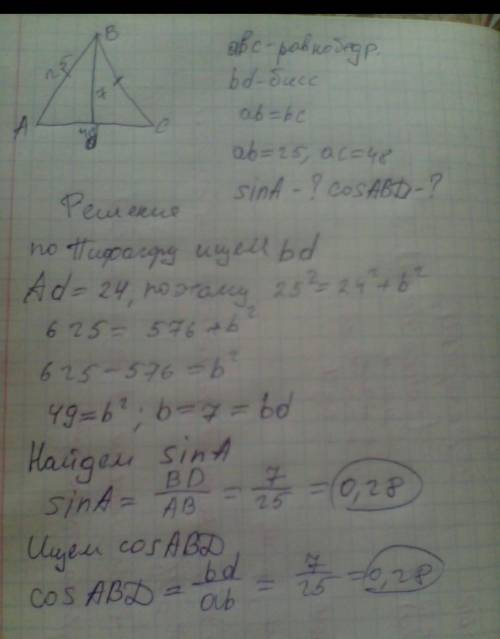 B
25
7
A
C
48
abc-равнобедр.
bd-бисс
ab=bc
ab=25, ac=48
sinA-? cosABD-?
Решение
по Пифагору ищем bd
Ad=24, поэтому 25²=24²+b²
625= 576+b²
625-576=b²
49=b²; b=7=bd
Найдем sinA
sinA= BD/AB = 7/25 = 0,28
Ищем cosABD
cosABD = bd/ab = 7/25 =0,28